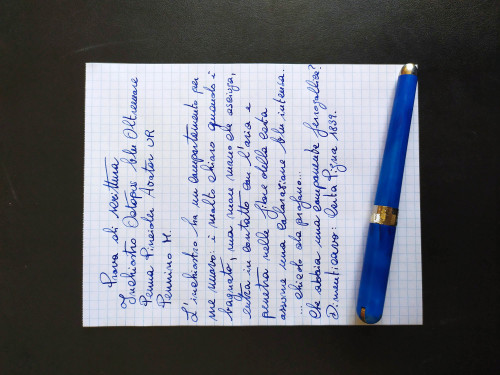 Prova di scrittura
Inchiostro Octopus blu Oltremare
Penna Pineider Avatar UR
Pennino M.
L'inchiostro ha un comportamento per
me curioso: è molto chiaro quando è
bagnato, ma mano mano che asciuga,
entra in contatto con l'aria e
penetra nelle fibre della carta
assume una colorazione blu intensa.
... chiedo da profano...
Che abbia una componente ferrogallica?
Dimenticavo: Carta Pigna 1839.